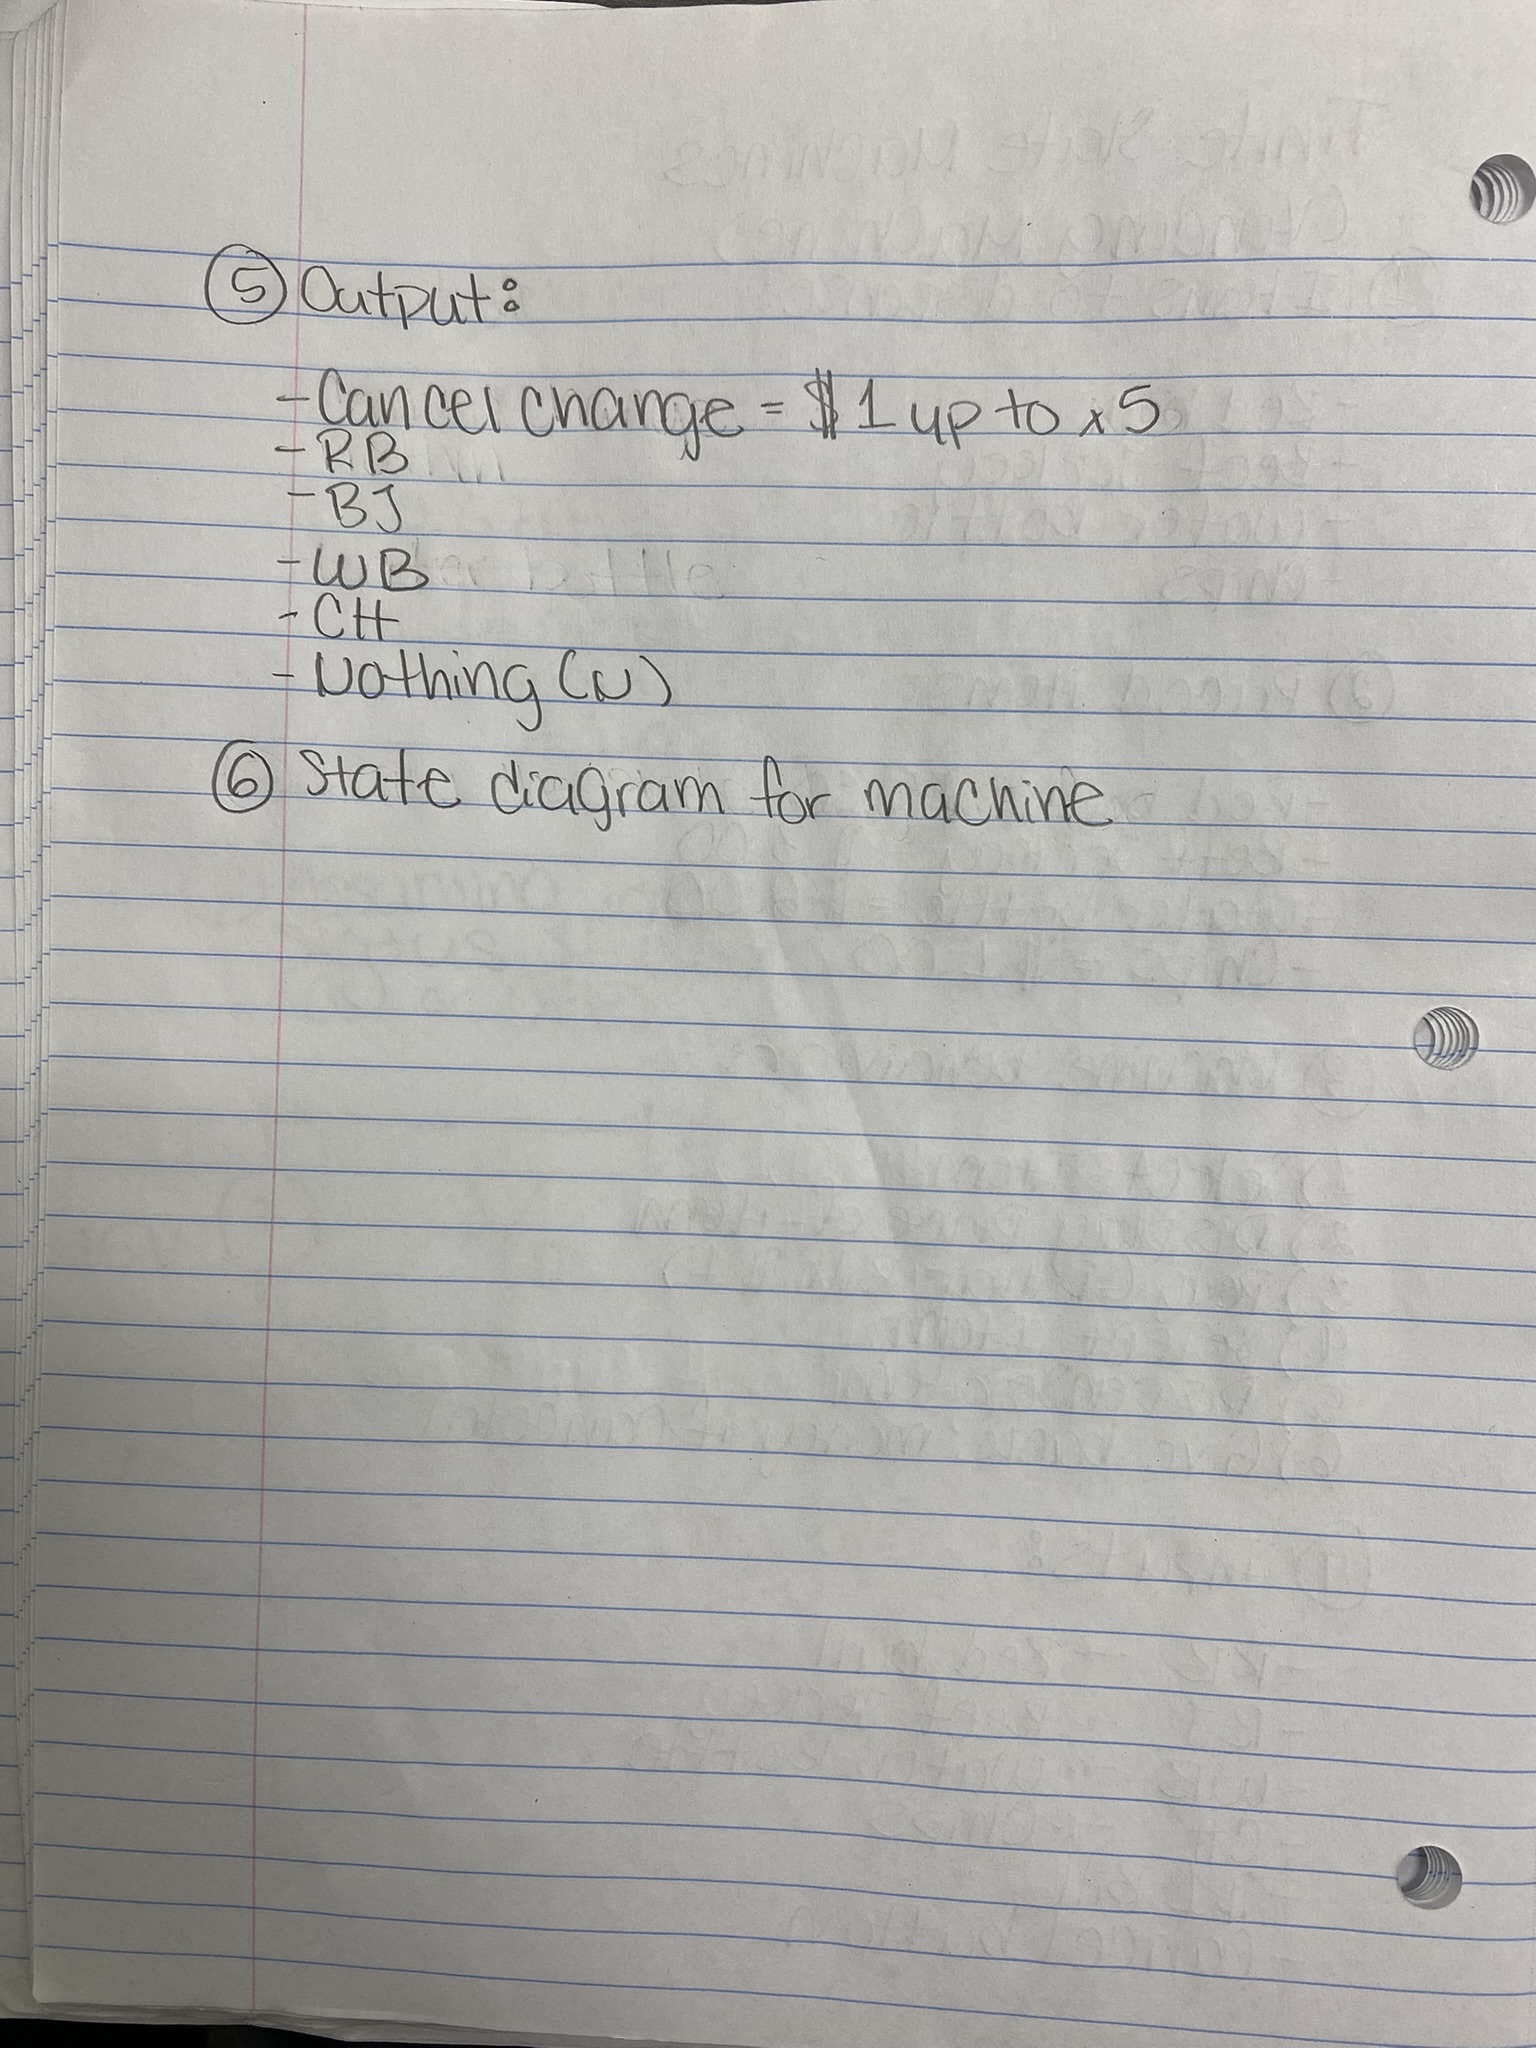 5 Output:
- Cancel change = $1 up to x5
- RB
- BJ
- WB
- CH
- Nothing (N)
6 State diagram for machine